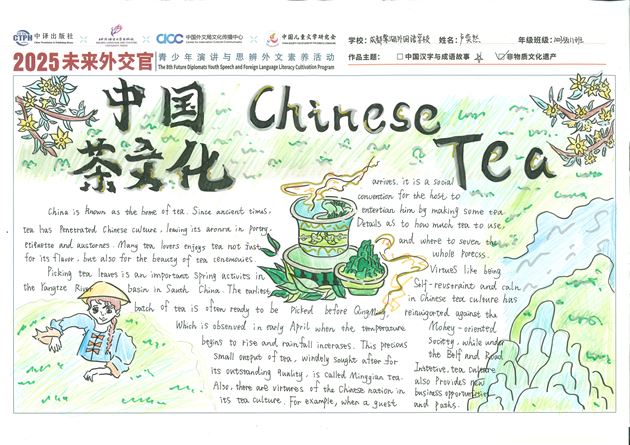 CTPH 中译出版社
CICC 中国外文局文化传播中心
中国儿童文学研究会
学校：
姓名：
年级班级：
2025未来外交官
青少年演讲与思辨外文素养活动
The 8th Future Diplomats Youth Speech and Foreign Language Literacy Cultivation Program
作品主题： 中国汉字与成语故事 非物质文化遗产
中国 Chinese
茶文化 Tea
China is known as the home of tea. Since ancient times,
tea has penetrated Chinese culture, leaving its aroma in poetry,
etiquette and customes. Many tea lovers enjoys tea not just
for its flavor, but also for the beauty of tea ceremonies.
Picking tea leaves is an important Spring activity in
the Yangtze River basin in South China. The earliest
batch of tea is often ready to be Picked before QingMing,
Which is observed in early April when the temperature
begins to rise and rainfall increases. This precious
Small output of tea, windely sought after for
its outstanding quality, is called Mingqian tea.
Also, there are virtures of the Chinese nation in
its tea culture. For example, when a guest
arrives, it is a social
convention for the host to
entertian him by making some tea
Details as to how much tea to use,
and where to seven the
whole Porecss.
Virtues like being
Self-restraint and calm
in Chinese tea culture has
against the
Mohey-oriented
Society, while under
the Belf and Road
tea culture
also Provides new
business opportunities
and paths.